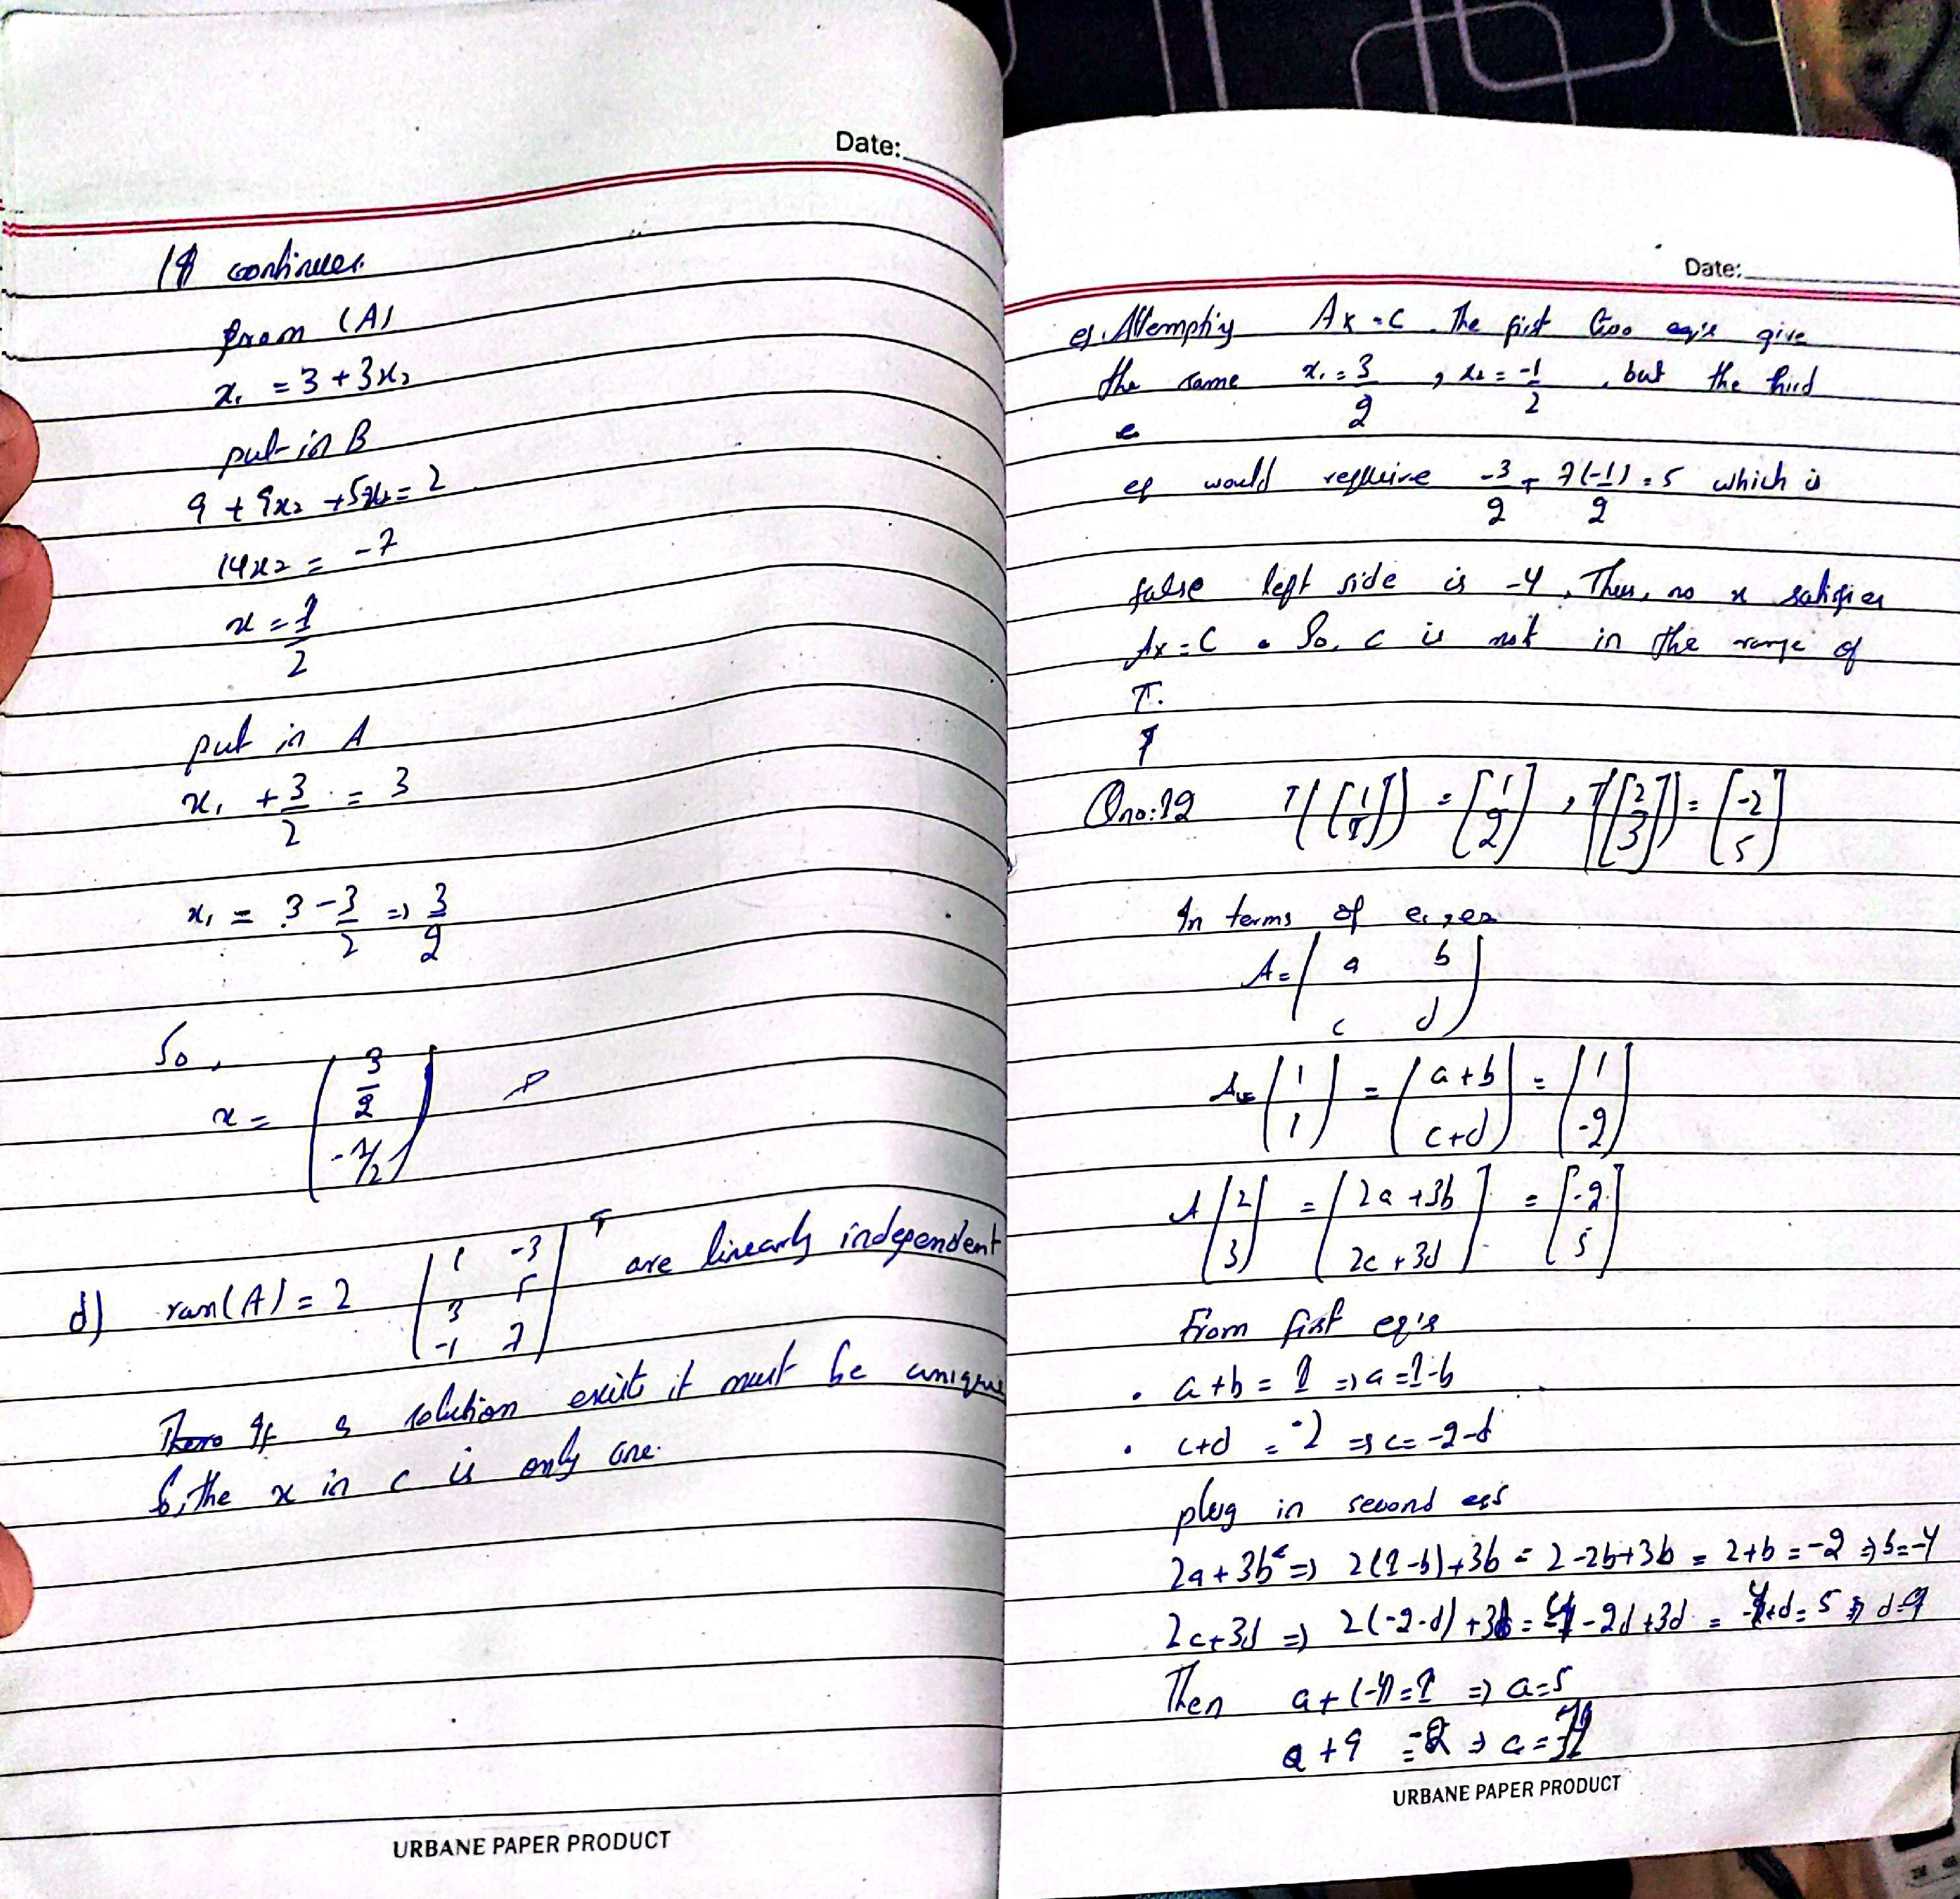 Date:
continues.
from (A)
x₁ = 3 + 3x₂
put in B
9 + 9x₂ + 5x₂ = 2
14x₂ = -7
x = -1/2
put in A
x₁ + 3/2 = 3
x₁ = 3 - 3/2 => 3/2
So,
x = [3/2, -1/2]
d) ran(A) = 2 [1 -3, 3 5, -1 7]ᵀ are linearly independent
If a solution exist it must be unique
So, the x in c is only one.
URBANE PAPER PRODUCT
Date:
e). Attempting Ax = C. The first two eq's give
the same x₁ = 3/2, x₂ = -1/2, but the third
e
eq would require -3/2 + 7(-1)/2 = 5 which is
false left side is -4, Thus, no x satisfies
Ax = C. So, c is not in the range of
T.
Qno: T([1, 1]) = [1, 2], T([2, 3]) = [-2, 5]
In terms of e₁, e₂
A = [a b, c d]
A [1, 1] = [a+b, c+d] = [1, -2]
A [2, 3] = [2a+3b, 2c+3d] = [-2, 5]
From first eq's
• a+b = 1 => a = 1-b
• c+d = -2 => c = -2-d
plug in second eqs
2a + 3b => 2(1-b)+3b = 2-2b+3b = 2+b = -2 => b = -4
2c+3d => 2(-2-d) +3d = -4 -2d+3d = -4+d = 5 => d=9
Then a + (-4) = 1 => a=5
a + 9 = -2 => c = -11
URBANE PAPER PRODUCT